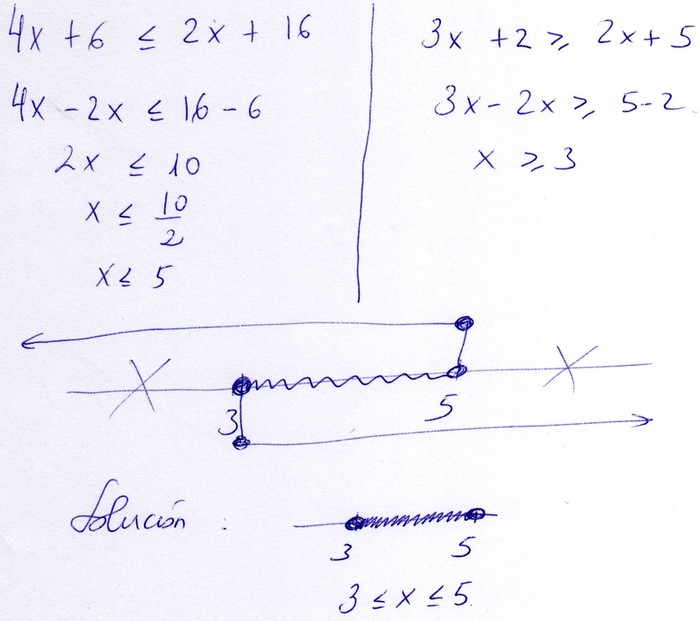 4x + 6 ≤ 2x + 16
4x - 2x ≤ 16 - 6
2x ≤ 10
x ≤ 10/2
x ≤ 5
3x + 2 ≥ 2x + 5
3x - 2x ≥ 5 - 2
x ≥ 3
3 5
Solución :
3 5
3 ≤ x ≤ 5